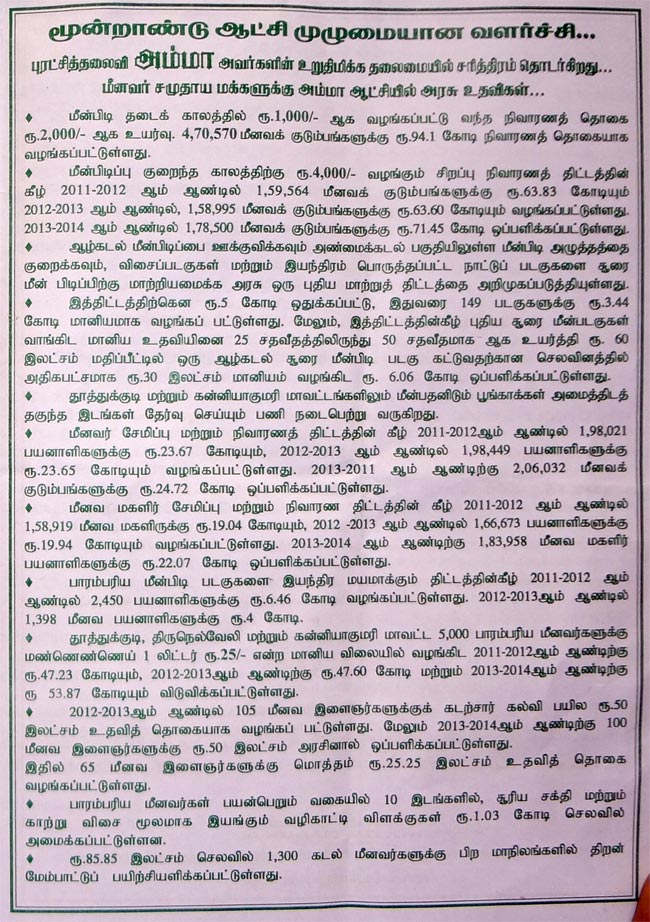 மூன்றாண்டு ஆட்சி முழுமையான வளர்ச்சி...
புரட்சித்தலைவி அம்மா அவர்களின் உறுதிமிக்க தலைமையில் சரித்திரம் தொடர்கிறது...
மீனவர் சமுதாய மக்களுக்கு அம்மா ஆட்சியில் அரசு உதவிகள்...
♦ மீன்பிடி தடைக் காலத்தில் ரூ.1,000/- ஆக வழங்கப்பட்டு வந்த நிவாரணத் தொகை
ரூ.2,000/- ஆக உயர்வு. 4,70,570 மீனவக் குடும்பங்களுக்கு ரூ.94.1 கோடி நிவாரணத் தொகையாக
வழங்கப்பட்டுள்ளது.
♦ மீன்பிடிப்பு குறைந்த காலத்திற்கு ரூ.4,000/- வழங்கும் சிறப்பு நிவாரணத் திட்டத்தின்
கீழ் 2011-2012 ஆம் ஆண்டில் 1,59,564 மீனவக் குடும்பங்களுக்கு ரூ.63.83 கோடியும்
2012-2013 ஆம் ஆண்டில், 1,58,995 மீனவக் குடும்பங்களுக்கு ரூ.63.60 கோடியும் வழங்கப்பட்டுள்ளது.
2013-2014 ஆம் ஆண்டில் 1,78,500 மீனவக் குடும்பங்களுக்கு ரூ.71.45 கோடி ஒப்பளிக்கப்பட்டுள்ளது.
♦ ஆழ்கடல் மீன்பிடிப்பை ஊக்குவிக்கவும் அண்மைக்கடல் பகுதியிலுள்ள மீன்பிடி அழுத்தத்தை
குறைக்கவும், விசைப்படகுகள் மற்றும் இயந்திரம் பொருத்தப்பட்ட நாட்டுப் படகுகளை சூரை
மீன் பிடிப்பிற்கு மாற்றியமைக்க அரசு ஒரு புதிய மாற்றுத் திட்டத்தை அறிமுகப்படுத்தியுள்ளது.
♦ இத்திட்டத்திற்கென ரூ.5 கோடி ஒதுக்கப்பட்டு, இதுவரை 149 படகுகளுக்கு ரூ.3.44
கோடி மானியமாக வழங்கப் பட்டுள்ளது. மேலும், இத்திட்டத்தின்கீழ் புதிய சூரை மீன்படகுகள்
வாங்கிட மானிய உதவியினை 25 சதவீதத்திலிருந்து 50 சதவீதமாக ஆக உயர்த்தி ரூ. 60
இலட்சம் மதிப்பீட்டில் ஒரு ஆழ்கடல் சூரை மீன்பிடி படகு கட்டுவதற்கான செலவினத்தில்
அதிகபட்சமாக ரூ.30 இலட்சம் மானியம் வழங்கிட ரூ. 6.06 கோடி ஒப்பளிக்கப்பட்டுள்ளது.
♦ தூத்துக்குடி மற்றும் கன்னியாகுமரி மாவட்டங்களிலும் மீன்பதனிடும் பூங்காக்கள் அமைத்திடத்
தகுந்த இடங்கள் தேர்வு செய்யும் பணி நடைபெற்று வருகிறது.
♦ மீனவர் சேமிப்பு மற்றும் நிவாரணத் திட்டத்தின் கீழ் 2011-2012ஆம் ஆண்டில் 1,98,021
பயனாளிகளுக்கு ரூ.23.67 கோடியும், 2012-2013 ஆம் ஆண்டில் 1,98,449 பயனாளிகளுக்கு
ரூ.23.65 கோடியும் வழங்கப்பட்டுள்ளது. 2013-2011 ஆம் ஆண்டிற்கு 2,06,032 மீனவக்
குடும்பங்களுக்கு ரூ.24.72 கோடி ஒப்பளிக்கப்பட்டுள்ளது.
♦ மீனவ மகளிர் சேமிப்பு மற்றும் நிவாரண திட்டத்தின் கீழ் 2011-2012 ஆம் ஆண்டில்
1,58,919 மீனவ மகளிருக்கு ரூ.19.04 கோடியும், 2012 -2013 ஆம் ஆண்டில் 1,66,673 பயனாளிகளுக்கு
ரூ.19.94 கோடியும் வழங்கப்பட்டுள்ளது. 2013-2014 ஆம் ஆண்டிற்கு 1,83,958 மீனவ மகளிர்
பயனாளிகளுக்கு ரூ.22.07 கோடி ஒப்பளிக்கப்பட்டுள்ளது.
♦ பாரம்பரிய மீன்பிடி படகுகளை இயந்திர மயமாக்கும் திட்டத்தின்கீழ் 2011-2012 ஆம்
ஆண்டில் 2,450 பயனாளிகளுக்கு ரூ.6.46 கோடி வழங்கப்பட்டுள்ளது. 2012-2013ஆம் ஆண்டில்
1,398 மீனவ பயனாளிகளுக்கு ரூ.4 கோடி.
♦ தூத்துக்குடி, திருநெல்வேலி மற்றும் கன்னியாகுமரி மாவட்ட 5,000 பாரம்பரிய மீனவர்களுக்கு
மண்ணெண்ணெய் 1 லிட்டர் ரூ.25/- என்ற மானிய விலையில் வழங்கிட 2011-2012ஆம் ஆண்டிற்கு
ரூ.47.23 கோடியும், 2012-2013ஆம் ஆண்டிற்கு ரூ.47.60 கோடி மற்றும் 2013-2014ஆம் ஆண்டிற்கு
ரூ 53.87 கோடியும் விடுவிக்கப்பட்டுள்ளது.
♦ 2012-2013ஆம் ஆண்டில் 105 மீனவ இளைஞர்களுக்குக் கடற்சார் கல்வி பயில ரூ.50
இலட்சம் உதவித் தொகையாக வழங்கப் பட்டுள்ளது. மேலும் 2013-2014ஆம் ஆண்டிற்கு 100
மீனவ இளைஞர்களுக்கு ரூ.50 இலட்சம் அரசினால் ஒப்பளிக்கப்பட்டுள்ளது.
இதில் 65 மீனவ இளைஞர்களுக்கு மொத்தம் ரூ.25.25 இலட்சம் உதவித் தொகை
வழங்கப்பட்டுள்ளது.
♦ பாரம்பரிய மீனவர்கள் பயன்பெறும் வகையில் 10 இடங்களில், சூரிய சக்தி மற்றும்
காற்று விசை மூலமாக இயங்கும் வழிகாட்டி விளக்குகள் ரூ.1.03 கோடி செலவில்
அமைக்கப்பட்டுள்ளன.
♦ ரூ.85.85 இலட்சம் செலவில் 1,300 கடல் மீனவர்களுக்கு பிற மாநிலங்களில் திறன்
மேம்பாட்டுப் பயிற்சியளிக்கப்பட்டுள்ளது.